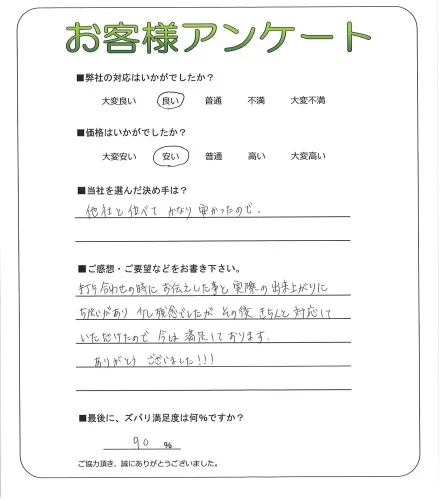 お客様アンケート
■弊社の対応はいかがでしたか?
大変良い 良い 普通 不満 大変不満
■価格はいかがでしたか?
大変安い 安い 普通 高い 大変高い
■当社を選んだ決め手は?
他社と比べて かなり安かったので.
■ご感想・ご要望などをお書き下さい。
打ち合わせの時に お伝えした事と 実際の 出来上がりに
ちがいがあり 少し残念でしたが その後 きちんと 対応して
いただけたので 今は 満足しております.
ありがとう ございました!!!
■最後に、ズバリ満足度は何%ですか?
90 %
ご協力頂き、誠にありがとうございました。